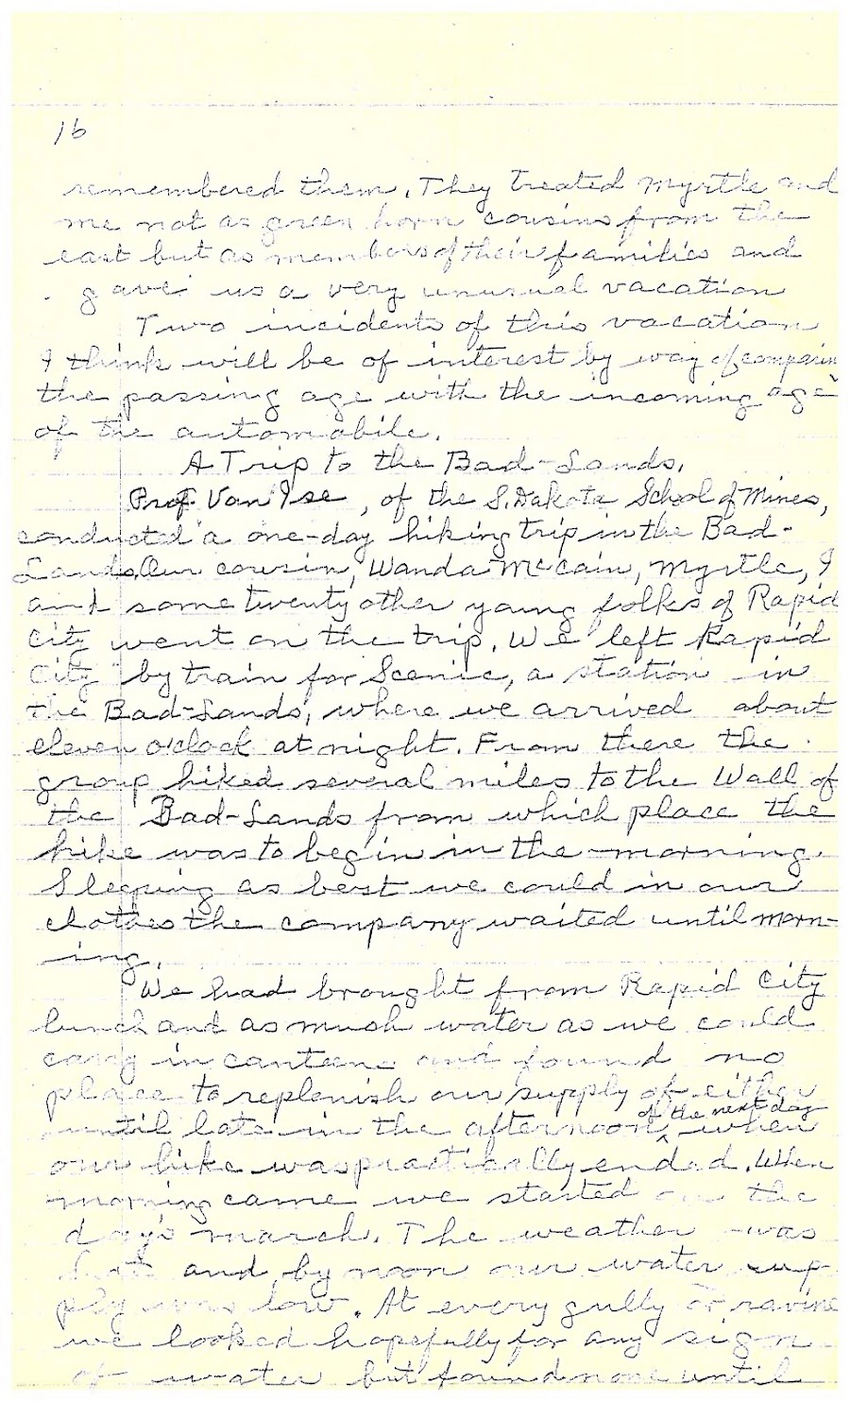 16
remembered them. They treated Myrtle and
me not as green horn cousins from the
east but as members of their families and
gave us a very unusual vacation
Two incidents of this vacation
I think will be of interest by way of compairin
the passing age with the incoming age
of the automobile.
A Trip to the Bad-Lands.
Prof. Van Ise, of the S. Dakota School of Mines,
conducted a one-day hiking trip in the Bad-
Lands. Our cousin, Wanda McCain, Myrtle, I
and some twenty other young folks of Rapid
City went on the trip. We left Rapid
City by train for Scenic, a station in
the Bad-Lands, where we arrived about
eleven o'clock at night. From there the
group hiked several miles to the Wall of
the Bad-Lands from which place the
hike was to begin in the morning.
Sleeping as best we could in our
clothes the company waited until morn-
ing.
We had brought from Rapid City
lunch and as much water as we could
carry in canteens and found no
place to replenish our supply of either
until late in the afternoon of the next day when
our hike was practically ended. When
morning came we started on the
day's march. The weather was
hot and by noon our water sup-
ply was low. At every gully or ravine
we looked hopefully for any sign
of water but found none until